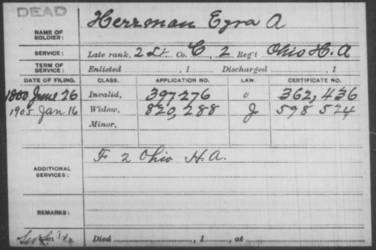 DEAD
NAME OF SOLDIER: Herrman Ezra A
SERVICE: Late rank, 2 Lt. Co. C, 2 Reg't Ohio H. A
TERM OF SERVICE: Enlisted , 1 Discharged , 1
DATE OF FILING. CLASS. APPLICATION NO. LAW. CERTIFICATE NO.
1880 June 26 Invalid, 397276 362,436
1905 Jan 16 Widow, 820,288 J 598 524
Minor,
ADDITIONAL SERVICES: F 2 Ohio H.A.
REMARKS:
Died , 1 , at